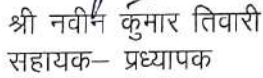 श्री नवीन कुमार तिवारी
सहायक– प्रध्यापक